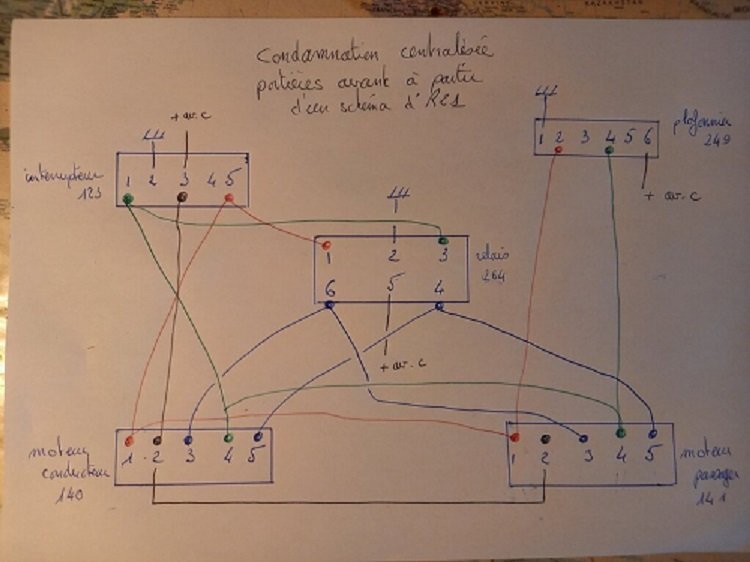 KAZAKHSTAN
Condamnation centralisée
portières avant à partir
d'un schéma d'RES
+ av. c
interrupteur
123
1 2 3 4 5
plafonnier
249
1 2 3 4 5 6
+ av. c
relais
264
1 2 3
6 5 4
+ av. c
moteur
conducteur
140
1 2 3 4 5
moteur
passager
141
1 2 3 4 5